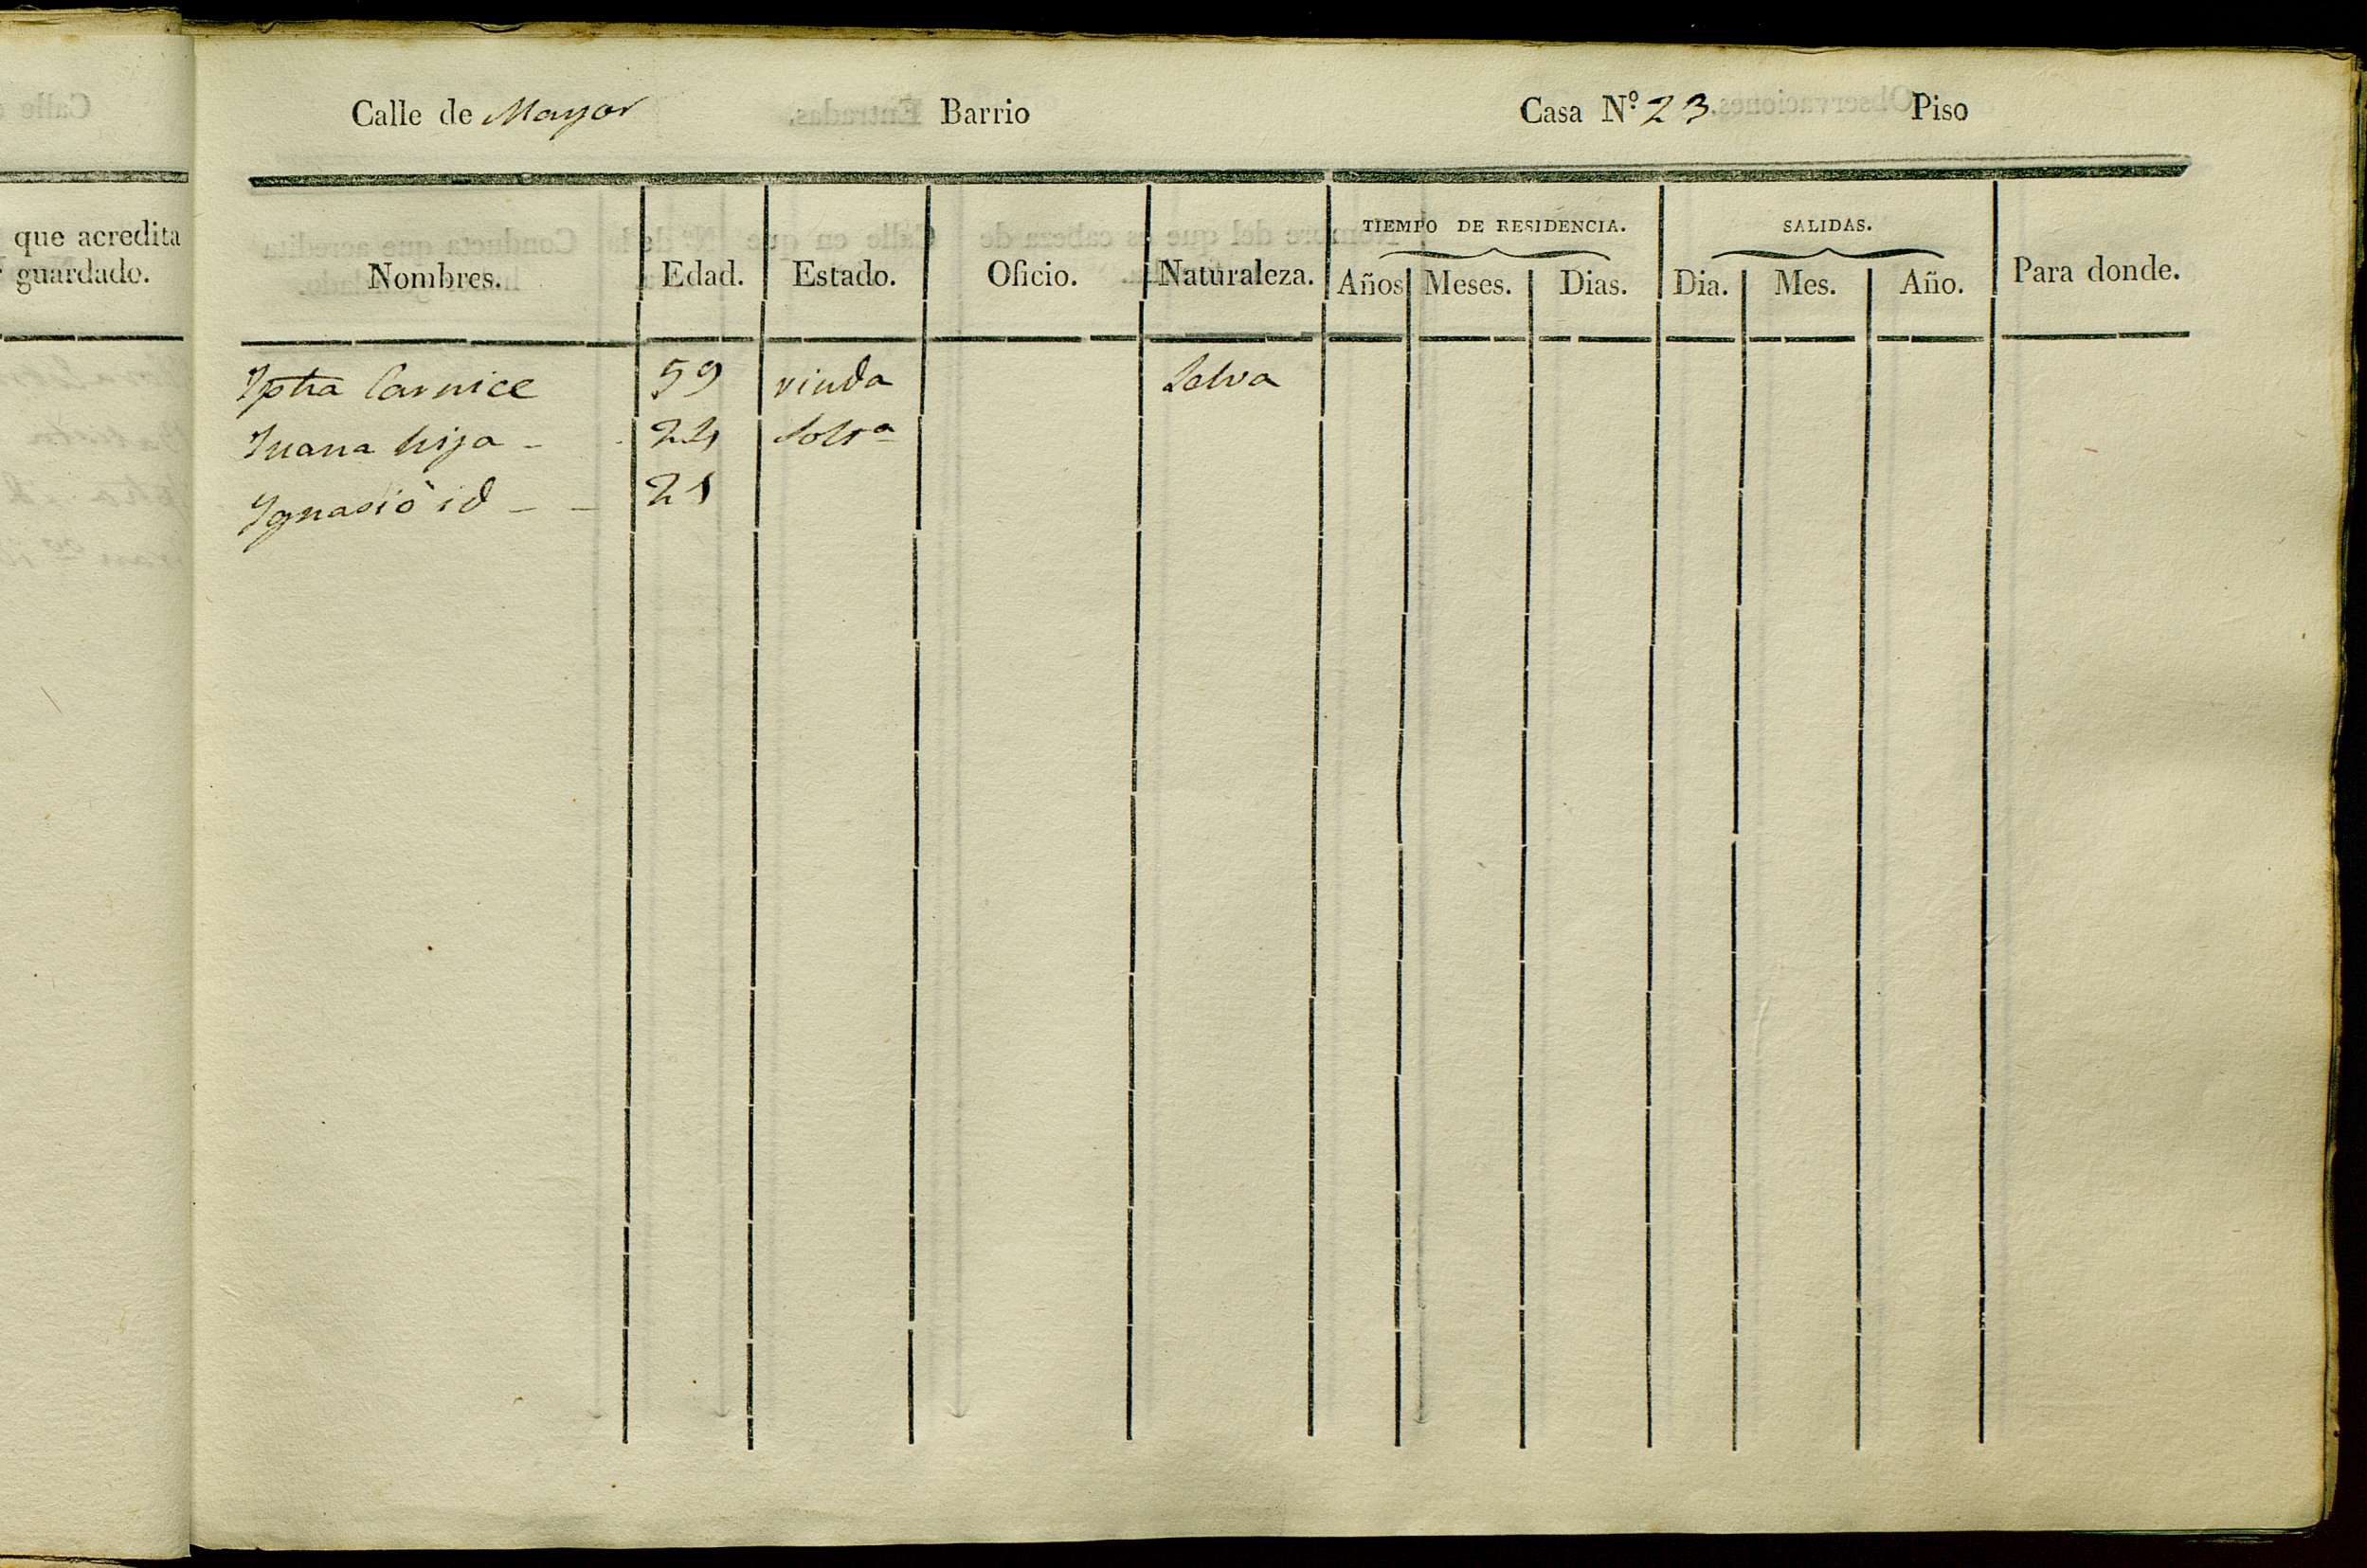 que acredita
guardado.
Calle de Mayor Barrio Casa N.º 23 Piso
Nombres. Edad. Estado. Oficio. Naturaleza. TIEMPO DE RESIDENCIA. SALIDAS. Para donde.
Años Meses. Dias. Dia. Mes. Año.
Iptha Carnice 59 viuda Selva
Juana hija - 24 Solt.ª
Ignasió id - - 21